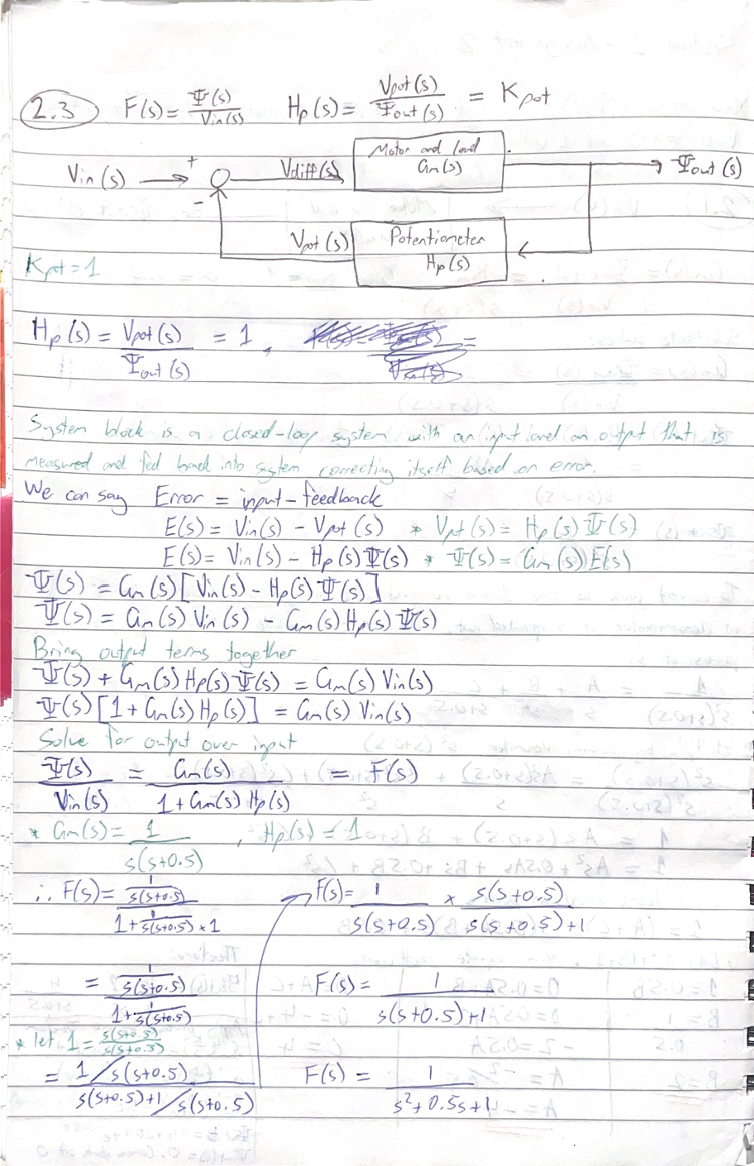 2.3 F(s) = Ψ(s)/Vin(s) Hp(s) = Vpot(s)/Ψout(s) = Kpot
Vin(s) + - Vdiff(s) Motor and load Gm(s) Ψout(s)
Vpot(s) Potentiometer Hp(s)
Kpot = 1
Hp(s) = Vpot(s)/Ψout(s) = 1,
System block is a closed-loop system with an input and an output that is
measured and fed back into system correcting itself based on error.
We can say Error = input - feedback
E(s) = Vin(s) - Vpot(s) * Vpt(s) = Hp(s) Ψ(s)
E(s) = Vin(s) - Hp(s) Ψ(s) * Ψ(s) = Gm(s) E(s)
Ψ(s) = Gm(s) [Vin(s) - Hp(s) Ψ(s)]
Ψ(s) = Gm(s) Vin(s) - Gm(s) Hp(s) Ψ(s)
Bring output terms together
Ψ(s) + Gm(s) Hp(s) Ψ(s) = Gm(s) Vin(s)
Ψ(s) [1 + Gm(s) Hp(s)] = Gm(s) Vin(s)
Solve for output over input
Ψ(s)/Vin(s) = Gm(s)/(1 + Gm(s) Hp(s)) = F(s)
* Gm(s) = 1/(s(s+0.5)), Hp(s) = 1
∴ F(s) = (1/(s(s+0.5)))/(1 + 1/(s(s+0.5)) × 1)
= (1/(s(s+0.5)))/(1 + 1/(s(s+0.5)))
* let 1 = s(s+0.5)/s(s+0.5)
= (1/s(s+0.5))/(s(s+0.5)+1/s(s+0.5))
F(s) = 1/(s(s+0.5)) × s(s+0.5)/(s(s+0.5)+1)
F(s) = 1/(s(s+0.5)+1)
F(s) = 1/(s²+0.5s+1)